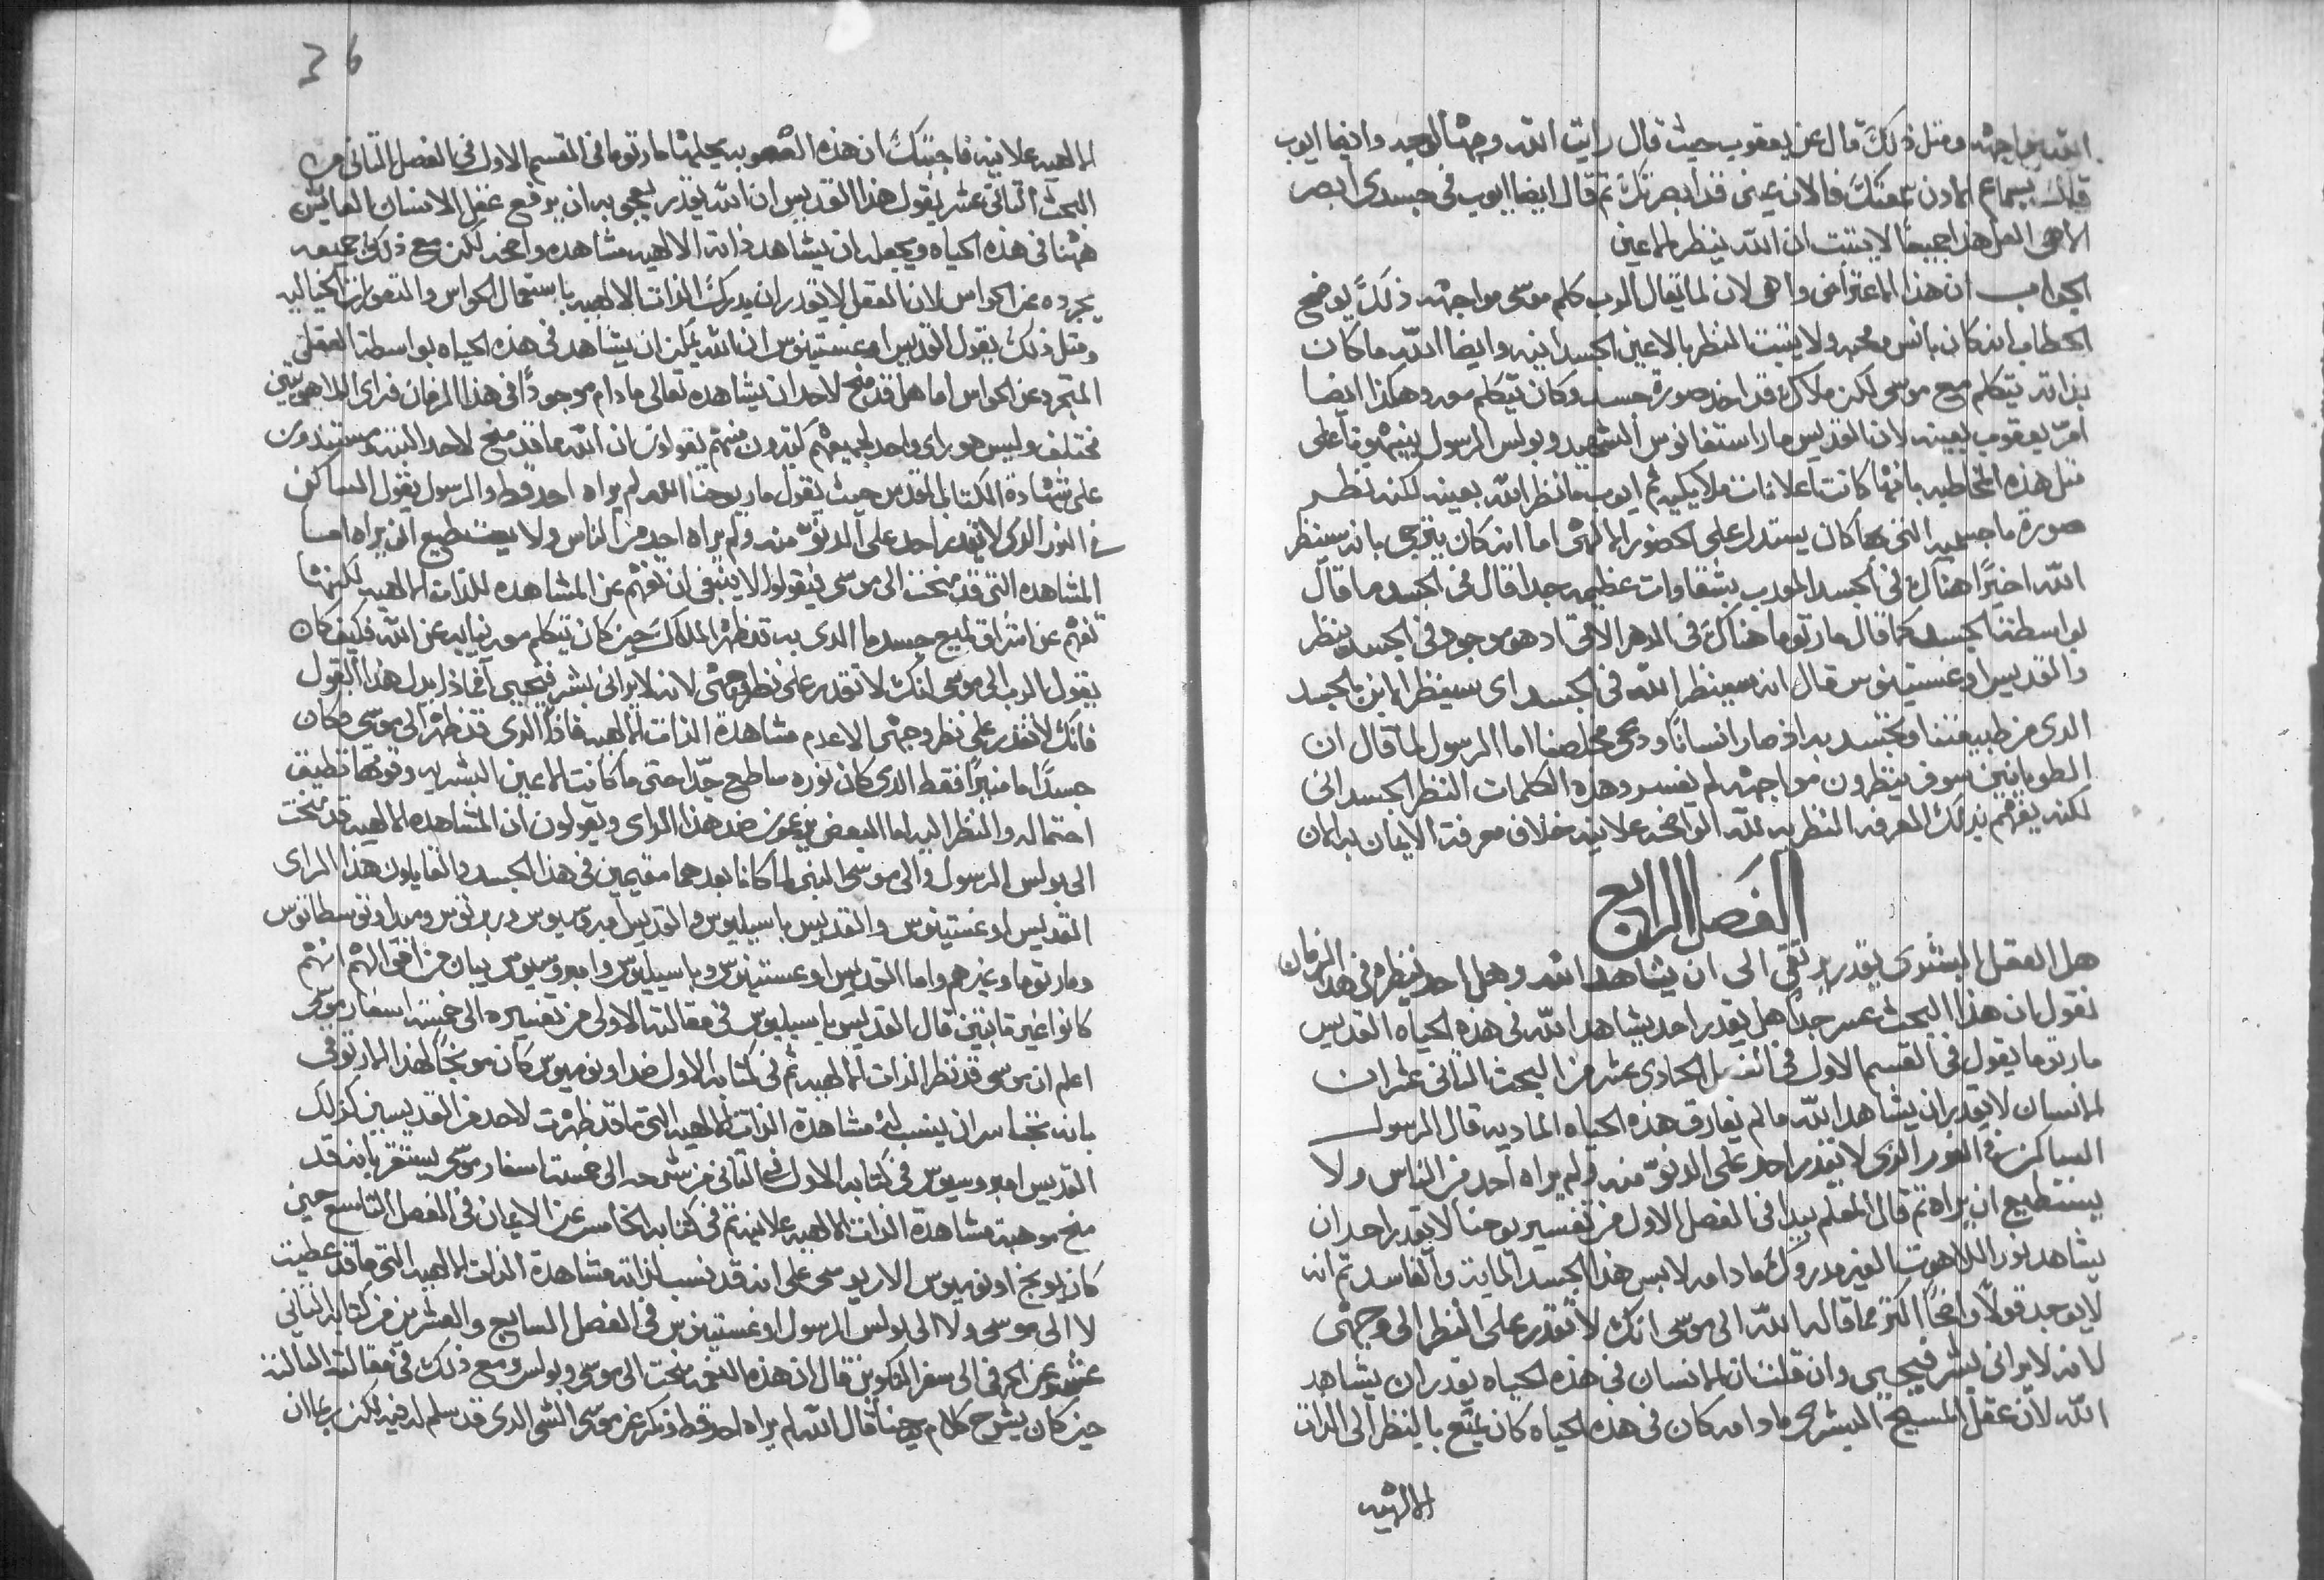 الله مواجهه ومثل ذلك قال عن يعقوب حيث قال رايت الله وجهًا لوجه وايضا ايوب
قايلًا بسماع الاذن سمعتك فالان عيني قد ابصرتك ثم قال ايضا ايوب في جسدي ابصر
الاهي العل هذا جميعه الا يثبت ان الله ينظر بالاعين
الجواب ان هذا الاعتراض واهي لان لما يقال الرب كلم موسى مواجهه ذلك يوضح
الخطاب انه كان بانس ومحبه ولا يثبت النظر بالاعين الجسدانيه وايضا الله ما كان
بذاته يتكلم مع موسى لكن ملاك قد اخذ صورة جسد وكان يتكلم معه وهكذا ايضا
امر يعقوب بعينه لان القديس مار استفانوس الشهيد وبولس الرسول ينبهونا على
مثل هذه المخاطبه بانها كانت اعلانات ملايكيه ثم ايوب ما نظر الله بعينه لكنه نظر
صورة ما جسميه التي بها كان يستدل على الحضور الالهي اما انه كان يترجى بانه سينظر
الله اخيرًا هناك في الجسد المعدب بشقاوات عظيمه جدا قال في الجسد ما قال
بواسطة الجسد كما قال مارتوما هناك في الدهر الاتي اد هو موجود في الجسد ينظر
والقديس اوغستينوس قال انه سينظر الله في الجسد اى سينظر الابن المتجسد
الدى من طبيعتنا وتجسد به اذ صار انسانًا ودعى مخلصنا اما الرسول لما قال ان
الطوبانيين سوف ينظرون مواجهه لم يفسر وهذه الكلمات النظر الجسداني
لكنه يفهم بذلك المعرفه النظريه لله الواضحه علانيه خلاف معرفة الايمان
الفصل الرابع
هل العقل البشرى يقدر يرتقى الى ان يشاهد الله وهل احد ينظره في هذا الزمان
نقول ان هذا البحث عسر جدًا هل يقدر احد يشاهد الله في هذه الحياه القديس
مارتوما يقول في القسم الاول في الفصل الحادى عشر من البحث الثاني عشر ان
الانسان لا يقدر ان يشاهد الله ما لم يفارق هذه الحياه الماديه قال الرسول
الساكن في النور الذى لا يقدر احد على الدنوّ منه ولم يراه احد من الناس ولا
يستطيع ان يراه ثم قال المعلم بيدا في الفصل الاول من تفسير يوحنا لا يقدر احد ان
يشاهد نور اللاهوت الغير مدروك ما دامه لابس هذا الجسد المايت والفاسد ثم انه
لا يوجد قولًا واضحًا اكثر مما قاله الله الى موسى انك لا تقدر على النظر الى وجهي
لانه لا يراني بشر فيحيى وان قلنا ان الانسان في هذه الحياه يقدر ان يشاهد
الله لان عقل المسيح البشرى ما دامه كان في هذه الحياه كان يتمتع بالنظر الى الذات
الالهيه
36
الالهيه علانيه فاجبتك ان هذه الصعوبه يحلها مارتوما في القسم الاول في الفصل الثاني من
البحث الثاني عشر يقول هذا القديس ان الله يقدر بعجيبه ان يرفع عقل الانسان العايش
ههنا في هذه الحياه ويجعله ان يشاهد ذاته الالهيه مشاهده واضحه لكن مع ذلك جميعه
يجرده عن الحواس لان العقل لا يقدر ان يدرك الذات الالهيه باستعمال الحواس والتصورات الخياليه
ومثل ذلك يقول القديس اوغستينوس ان الله يمكن ان يشاهد في هذه الحياه بواسطة العقل
المتجرد عن الحواس اما هل قد منح لاحد ان يشاهده تعالى ما دام موجودًا في هذا الزمان فراى اللاهوتيين
مختلف وليس هو براى واحد لجميعهم كثيرون منهم يقولون ان الله ما قد منح لاحد البته مستندون
على شهادة الكتاب المقدس حيث يقول مار يوحنا الله لم يراه احد قط والرسول يقول الساكن
في النور الدى لا يقدر احد على الدنوّ منه ولم يراه احد من الناس ولا يستطيع ان يراه اما
المشاهده التي قد منحت الى موسى فيقولوا لا ينبغي ان تفهم عن المشاهده للذات الالهيه لكنها
تفهم عن اشراق لميع جسد ما الدى به قد ظهر الملاك حين كان يتكلم معه نيابه عن الله فكيف كان
يقول الرب الى موسى انك لا تقدر على نظر وجهي لانه لا يراني بشر فيحيى فماذا يدل هذا القول
فانك لا تقدر على نظر وجهي الا عدم مشاهدة الذات الالهيه فاذًا الدى قد ظهر الى موسى فكان
جسدًا ما منيرًا فقط الدى كان نوره ساطع جدًا حتى ما كانت الاعين البشريه وقوتها تطيق
احتماله والنظر اليه اما البعض يزعمون ضد هذا الراى ويقولون ان المشاهده الالهيه قد منحت
الى بولس الرسول والى موسى النبي لما كانا بعدهما مقيمين في هذا الجسد والقايلون هذا الراى
القديس اوغستينوس والقديس باسيليوس والقديس امبروسيوس
ومارتوما وغيرهم واما القديس اوغستينوس وباسيليوس وامبروسيوس يبان من اقوالهم انهم
كانوا غير ثابتين قال القديس باسيليوس في مقالته الاولى من تفسيره الى خمسة اسفار موسى
اعلم ان موسى قد نظر الذات الالهيه ثم في كتابه الاول ضد اونوميوس كان موبخًا لهذا الاراتوقي
بانه تجاسر ان ينسب له مشاهدة الذات الالهيه التي ما قد ظهرت لاحد من القديسين كذلك
القديس امبروسيوس في كتابه الاول في الثاني من شرحه الى خمسة اسفار موسى يستقر بانه قد
منح موهبة مشاهدة الذات الالهيه علانيه ثم في كتابه الخامس عن الايمان في الفصل التاسع حين
كان يوبخ اونوميوس الاريوسى على انه قد نسب لذاته مشاهدة الذات الالهيه التي ما قد عطيت
لا الى موسى ولا الى بولس الرسول اوغستينوس في الفصل السابع والعشرين من كتابه الثاني
عشر عن الحرفي الى سفر التكوين قال ان هذه النعمه منحت الى موسى وبولس ومع ذلك في مقالته الثالثه
حين كان يشرح كلام يوحنا قال الله لم يراه احد قط اذ ذكر عن موسى الشي الدى قد سلم له فيه لكن ربما ان